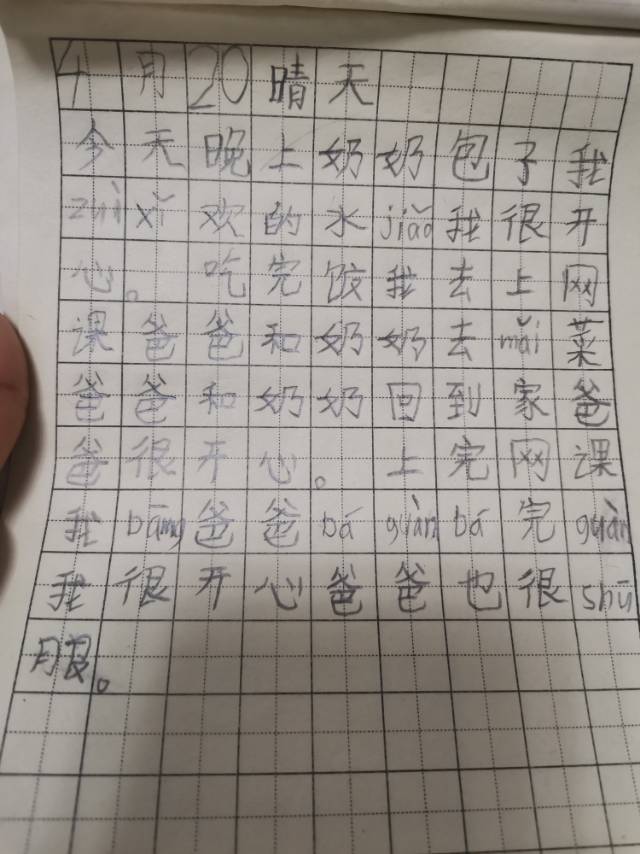 4月20晴天
今天晚上奶奶包子我
zuì xǐ欢的水jiǎo我很开
心。吃完饺我去上网
课爸爸和奶奶去mǎi菜
爸爸和奶奶回到家爸
爸很开心。上完网课
我bāng爸爸bá guàn bá完guàn
我很开心爸爸也很shū
服。